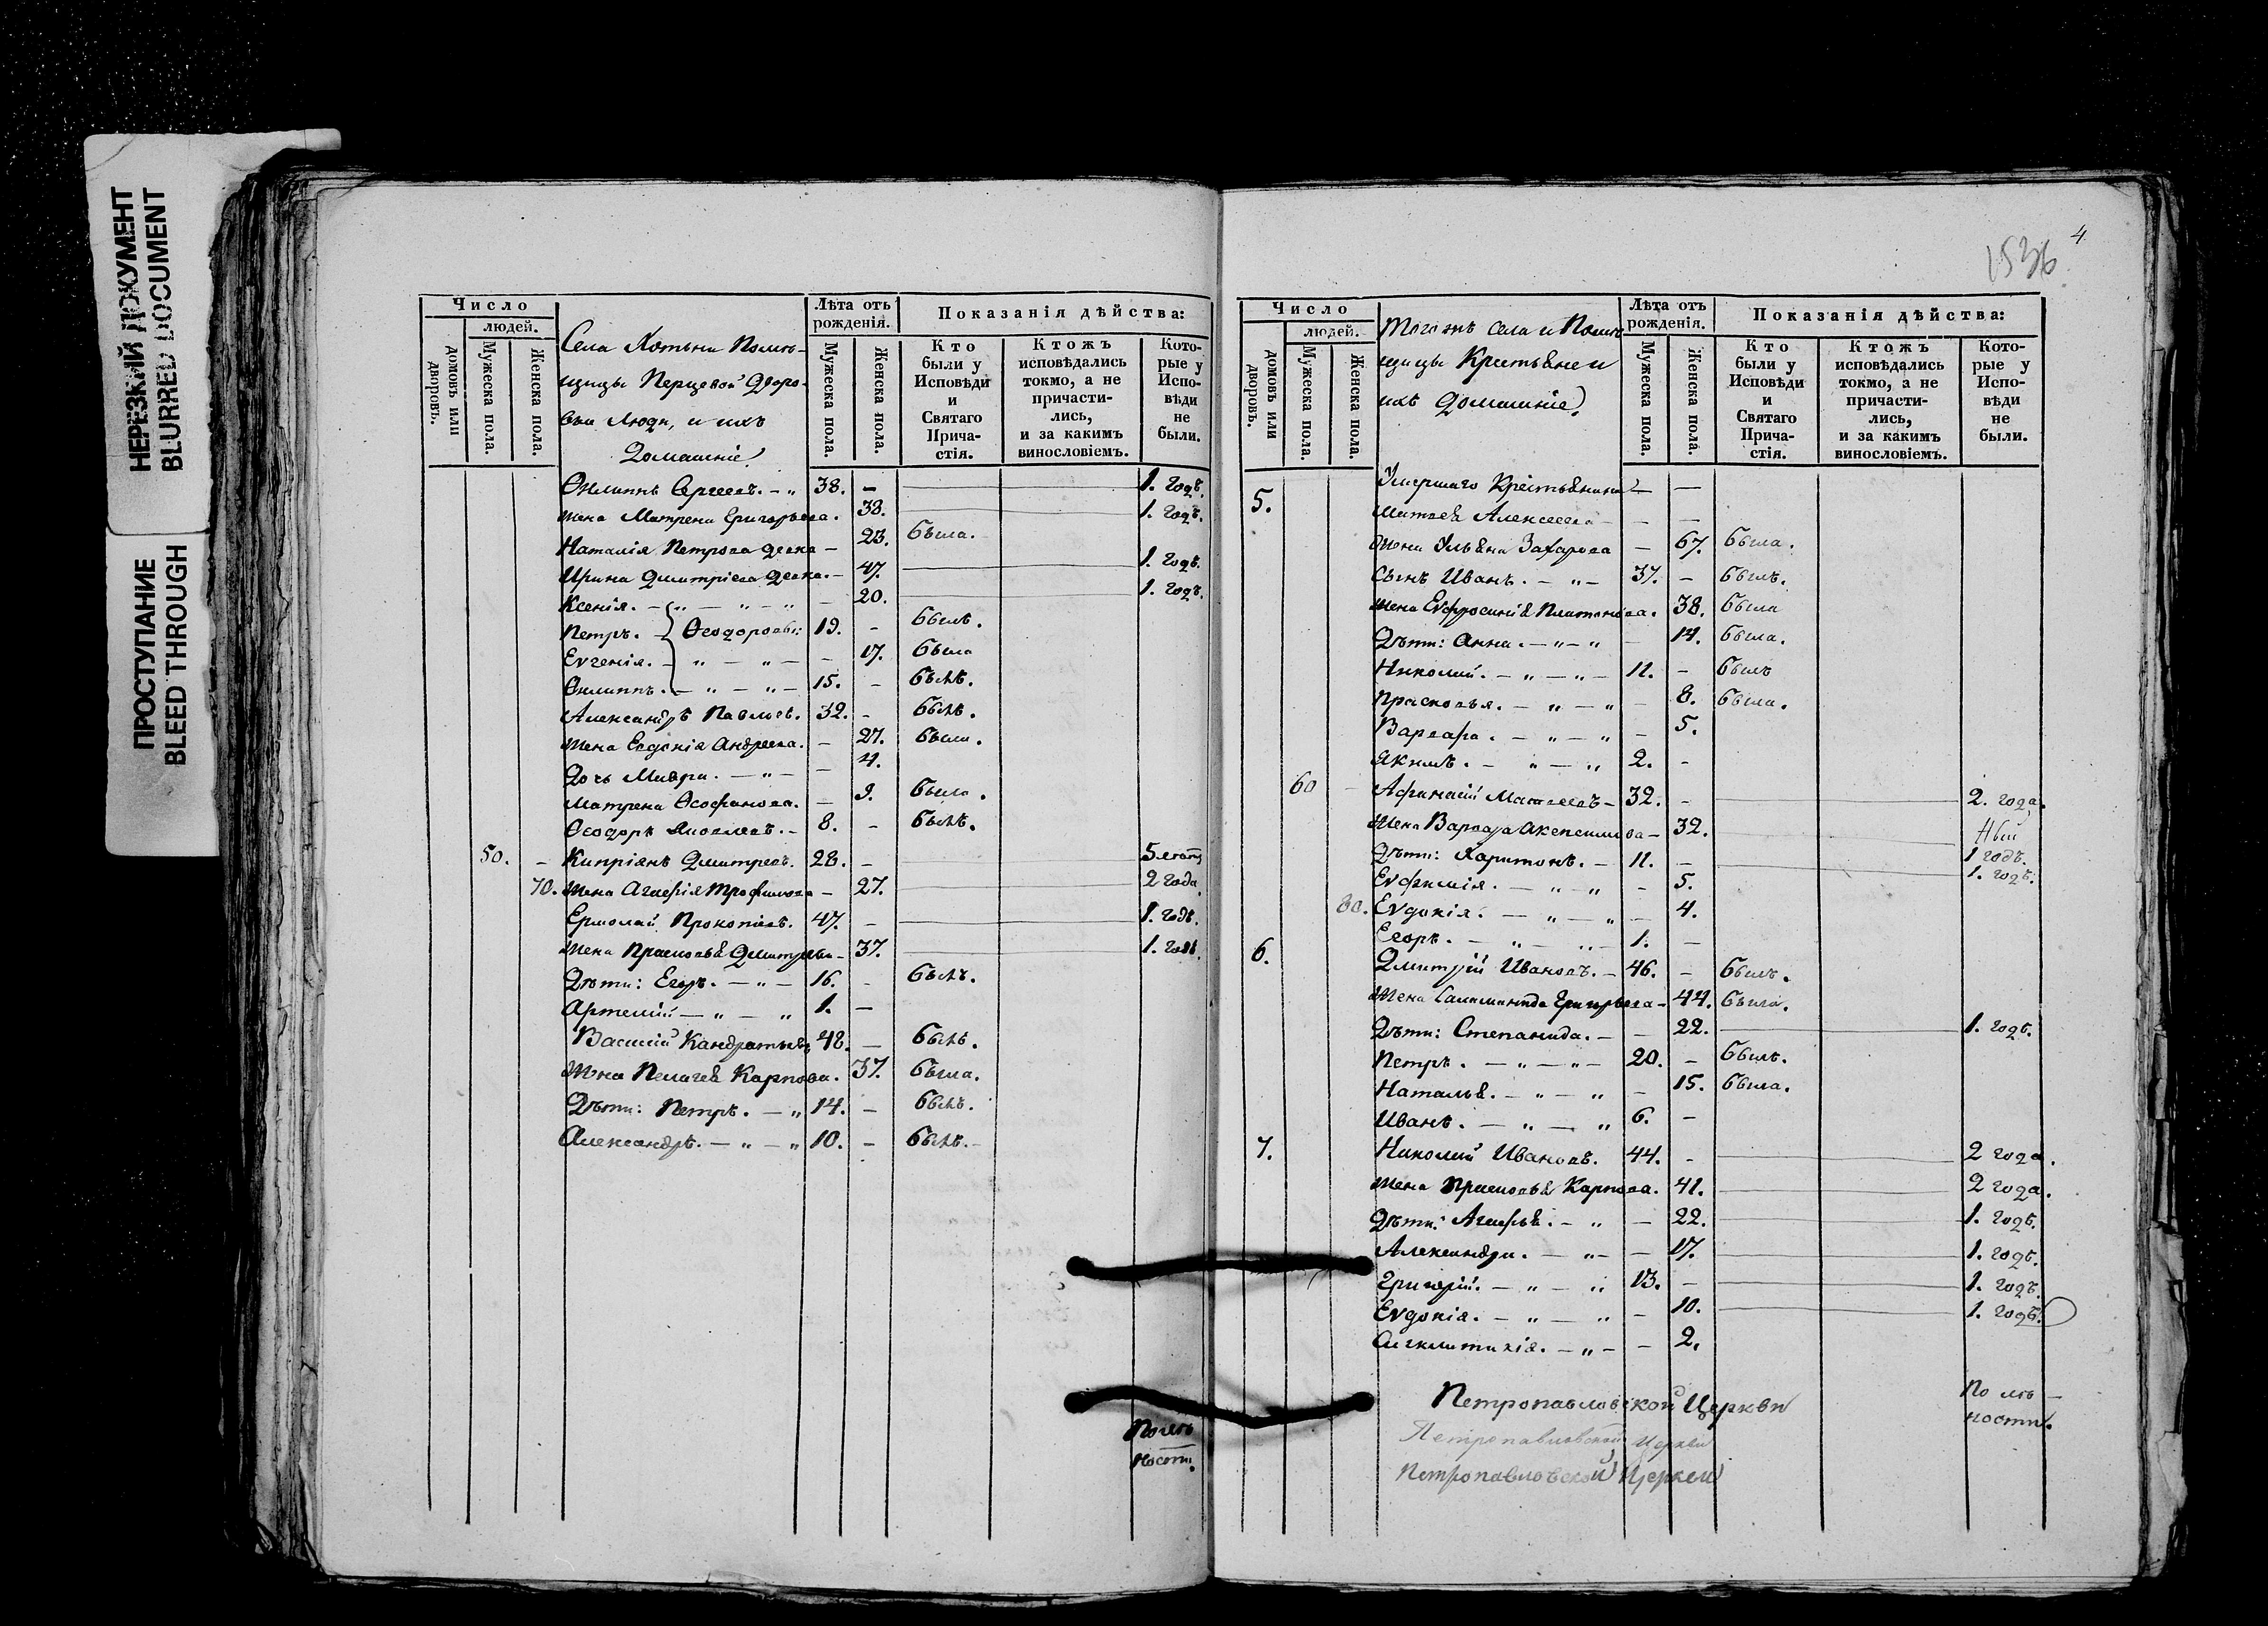 НЕРЕЗКИЙ ДОКУМЕНТ
BLURRED DOCUMENT
ПРОСТУПАНИЕ
BLEED THROUGH
Число
людей.
домовъ или дворовъ.
Мужеска пола.
Женска пола.
Села Хотьни Помѣ-
щицы Перцевой Дворо-
вые Люди, и ихъ
Домашніе.
Лѣта отъ рожденія.
Мужеска пола.
Женска пола.
Показанія дѣйства:
Кто были у Исповѣди и Святаго Прича-стія.
Ктожъ исповѣдались токмо, а не причасти-лись, и за какимъ винословіемъ.
Кото-рые у Испо-вѣди не были.
Филиппъ Сергеевъ. – „ 38. – 1. годъ.
Жена Матрена Григорьева. 38. 1. годъ.
Наталія Петрова девка – 23. была.
Ирина Дмитріева девка. – 47. 1. годъ.
Ксенія. – „ – „ – „ – 20. 1. годъ.
Петръ. – Ѳеодоровы: 19. – былъ.
Евгенія. – „ – „ – – 17. была
Филиппъ. – „ – „ – 15. – былъ.
Александръ Павловъ. 32. – былъ.
Жена Евдокія Андреева. – 27. была.
Дочь Мавра. – „ – – 4.
Матрена Ѳеофанова. – 9. была.
Ѳеодоръ Яковлевъ. – 8. – былъ.
50. – Кипріянъ Дмитревъ. 28. – 5 летъ
70. Жена Агафія Трофимова – 27. 2 года.
Ермолай Прокопіевъ. 47. – 1. годъ.
Жена Прасковья Дмитрева – 37. 1. годъ.
Дѣти: Егоръ. – „ – 16. – былъ.
Артемій – „ – „ 1. –
Василій Кандратьевъ 48. – былъ.
Жена Пелагея Карпова. 37. была.
Дѣти: Петръ. – „ 14. – былъ.
Александръ. – „ – „ 10. – былъ. –
По лѣ-
ности.
4
1536
Число
людей.
домовъ или дворовъ.
Мужеска пола.
Женска пола.
Тогожъ села и Помѣ
щицы Крестьяне и
ихъ домашніе.
Лѣта отъ рожденія.
Мужеска пола.
Женска пола.
Показанія дѣйства:
Кто были у Исповѣди и Святаго Прича-стія.
Ктожъ исповѣдались токмо, а не причасти-лись, и за какимъ винословіемъ.
Кото-рые у Испо-вѣди не были.
5. Умершаго Крестьянина – –
Матвея Алексеева – – –
Жена Ульяна Захарова – 67. была.
Сынъ Иванъ. – „ – 37. – былъ.
Жена Евфросинія Платонова. 38. была
Дѣти: Анна. – „ – „ – 14. была.
Николай. – „ – „ – 11. – былъ
Прасковья. – „ – „ – 8. была.
Варвара. – „ – „ – 5.
Якимъ. – „ – „ 2. –
60 – Афанасій Матвеевъ – 32. – 2. года.
Жена Варвара Акепсимова – 32.
Дѣти: Харитонъ. – 11. – 1 годъ.
Евфимія. – „ – „ – 5. 1. годъ.
80. Евдокія. – „ – „ – 4.
Егоръ. – „ – „ – 1. –
6. Дмитрій Ивановъ. – 46. – былъ.
Жена Саламанида Григорьева – 44. была.
Дѣти: Степанида. – – 22. 1. годъ.
Петръ. – „ – „ – 20. – былъ.
Наталья. – „ – „ – 15. была.
Иванъ. – „ – „ 6. –
7. Николай Ивановъ. 44. – 2 года.
Жена Прасковья Карпова. 41. 2 года.
Дѣти: Агафья. – „ – 22. 1. годъ.
Александра. – „ – – 17. 1. годъ.
Григорій. – „ – „ 13. – 1. годъ.
Евдокія. – „ – „ – 10. 1. годъ.
Сигклитикія. – „ – – 2.
По лѣ –
ности.
Петропавловской Церкви
Петропавловской Церкви
Петропавловской Церкви